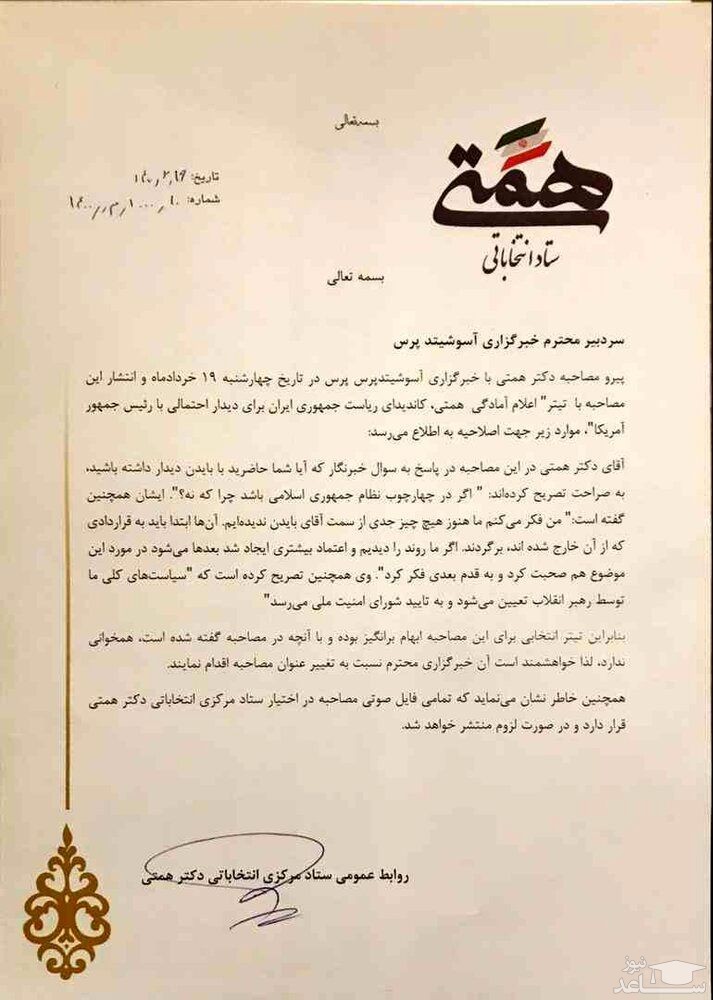 بسمه‌تعالی
همتی
ستاد انتخاباتی
تاریخ:
شماره:
بسمه تعالی
سردبیر محترم خبرگزاری آسوشیتد پرس
پیرو مصاحبه دکتر همتی با خبرگزاری آسوشیتدپرس پرس در تاریخ چهارشنبه ۱۹ خردادماه و انتشار این
مصاحبه با تیتر" اعلام آمادگی همتی، کاندیدای ریاست جمهوری ایران برای دیدار احتمالی با رئیس جمهور
آمریکا"، موارد زیر جهت اصلاحیه به اطلاع می‌رسد:
آقای دکتر همتی در این مصاحبه در پاسخ به سوال خبرنگار که آیا شما حاضرید با بایدن دیدار داشته باشید،
به صراحت تصریح کرده‌اند: " اگر در چهارچوب نظام جمهوری اسلامی باشد چرا که نه؟". ایشان همچنین
گفته است:" من فکر می‌کنم ما هنوز هیچ چیز جدی از سمت آقای بایدن ندیده‌ایم. آن‌ها ابتدا باید به قراردادی
که از آن خارج شده اند، برگردند. اگر ما روند را دیدیم و اعتماد بیشتری ایجاد شد بعدها می‌شود در مورد این
موضوع هم صحبت کرد و به قدم بعدی فکر کرد". وی همچنین تصریح کرده است که "سیاست‌های کلی ما
توسط رهبر انقلاب تعیین می‌شود و به تایید شورای امنیت ملی می‌رسد"
بنابراین تیتر انتخابی برای این مصاحبه ابهام برانگیز بوده و با آنچه در مصاحبه گفته شده است، همخوانی
ندارد، لذا خواهشمند است آن خبرگزاری محترم نسبت به تغییر عنوان مصاحبه اقدام نمایند.
همچنین خاطر نشان می‌نماید که تمامی فایل صوتی مصاحبه در اختیار ستاد مرکزی انتخاباتی دکتر همتی
قرار دارد و در صورت لزوم منتشر خواهد شد.
روابط عمومی ستاد مرکزی انتخاباتی دکتر همتی
ساعدنیوز